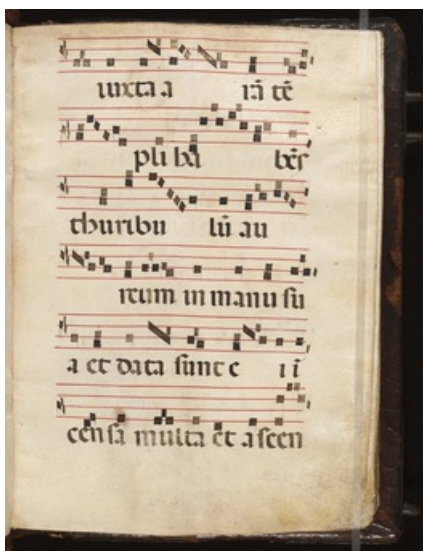 iuxta a rā tē
pli ba bēs
thuribu lū au
reum in manu su
a et data sunt e i ī
censa multa et ascen